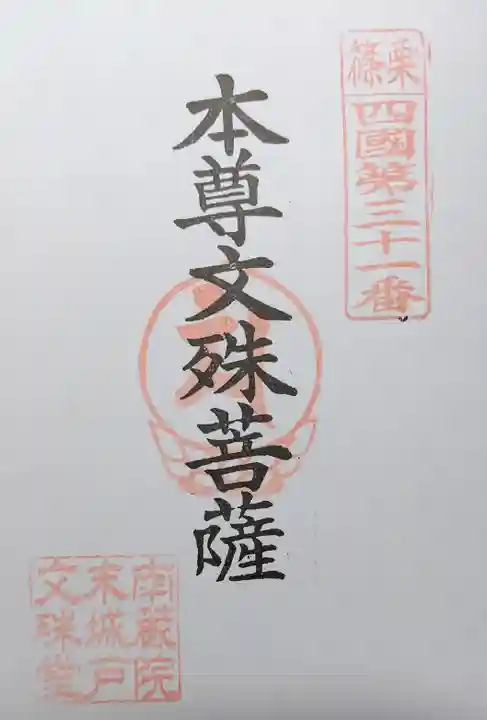 篠栗
四國第三十一番
本尊文殊菩薩
南蔵院
末城戸
文殊堂